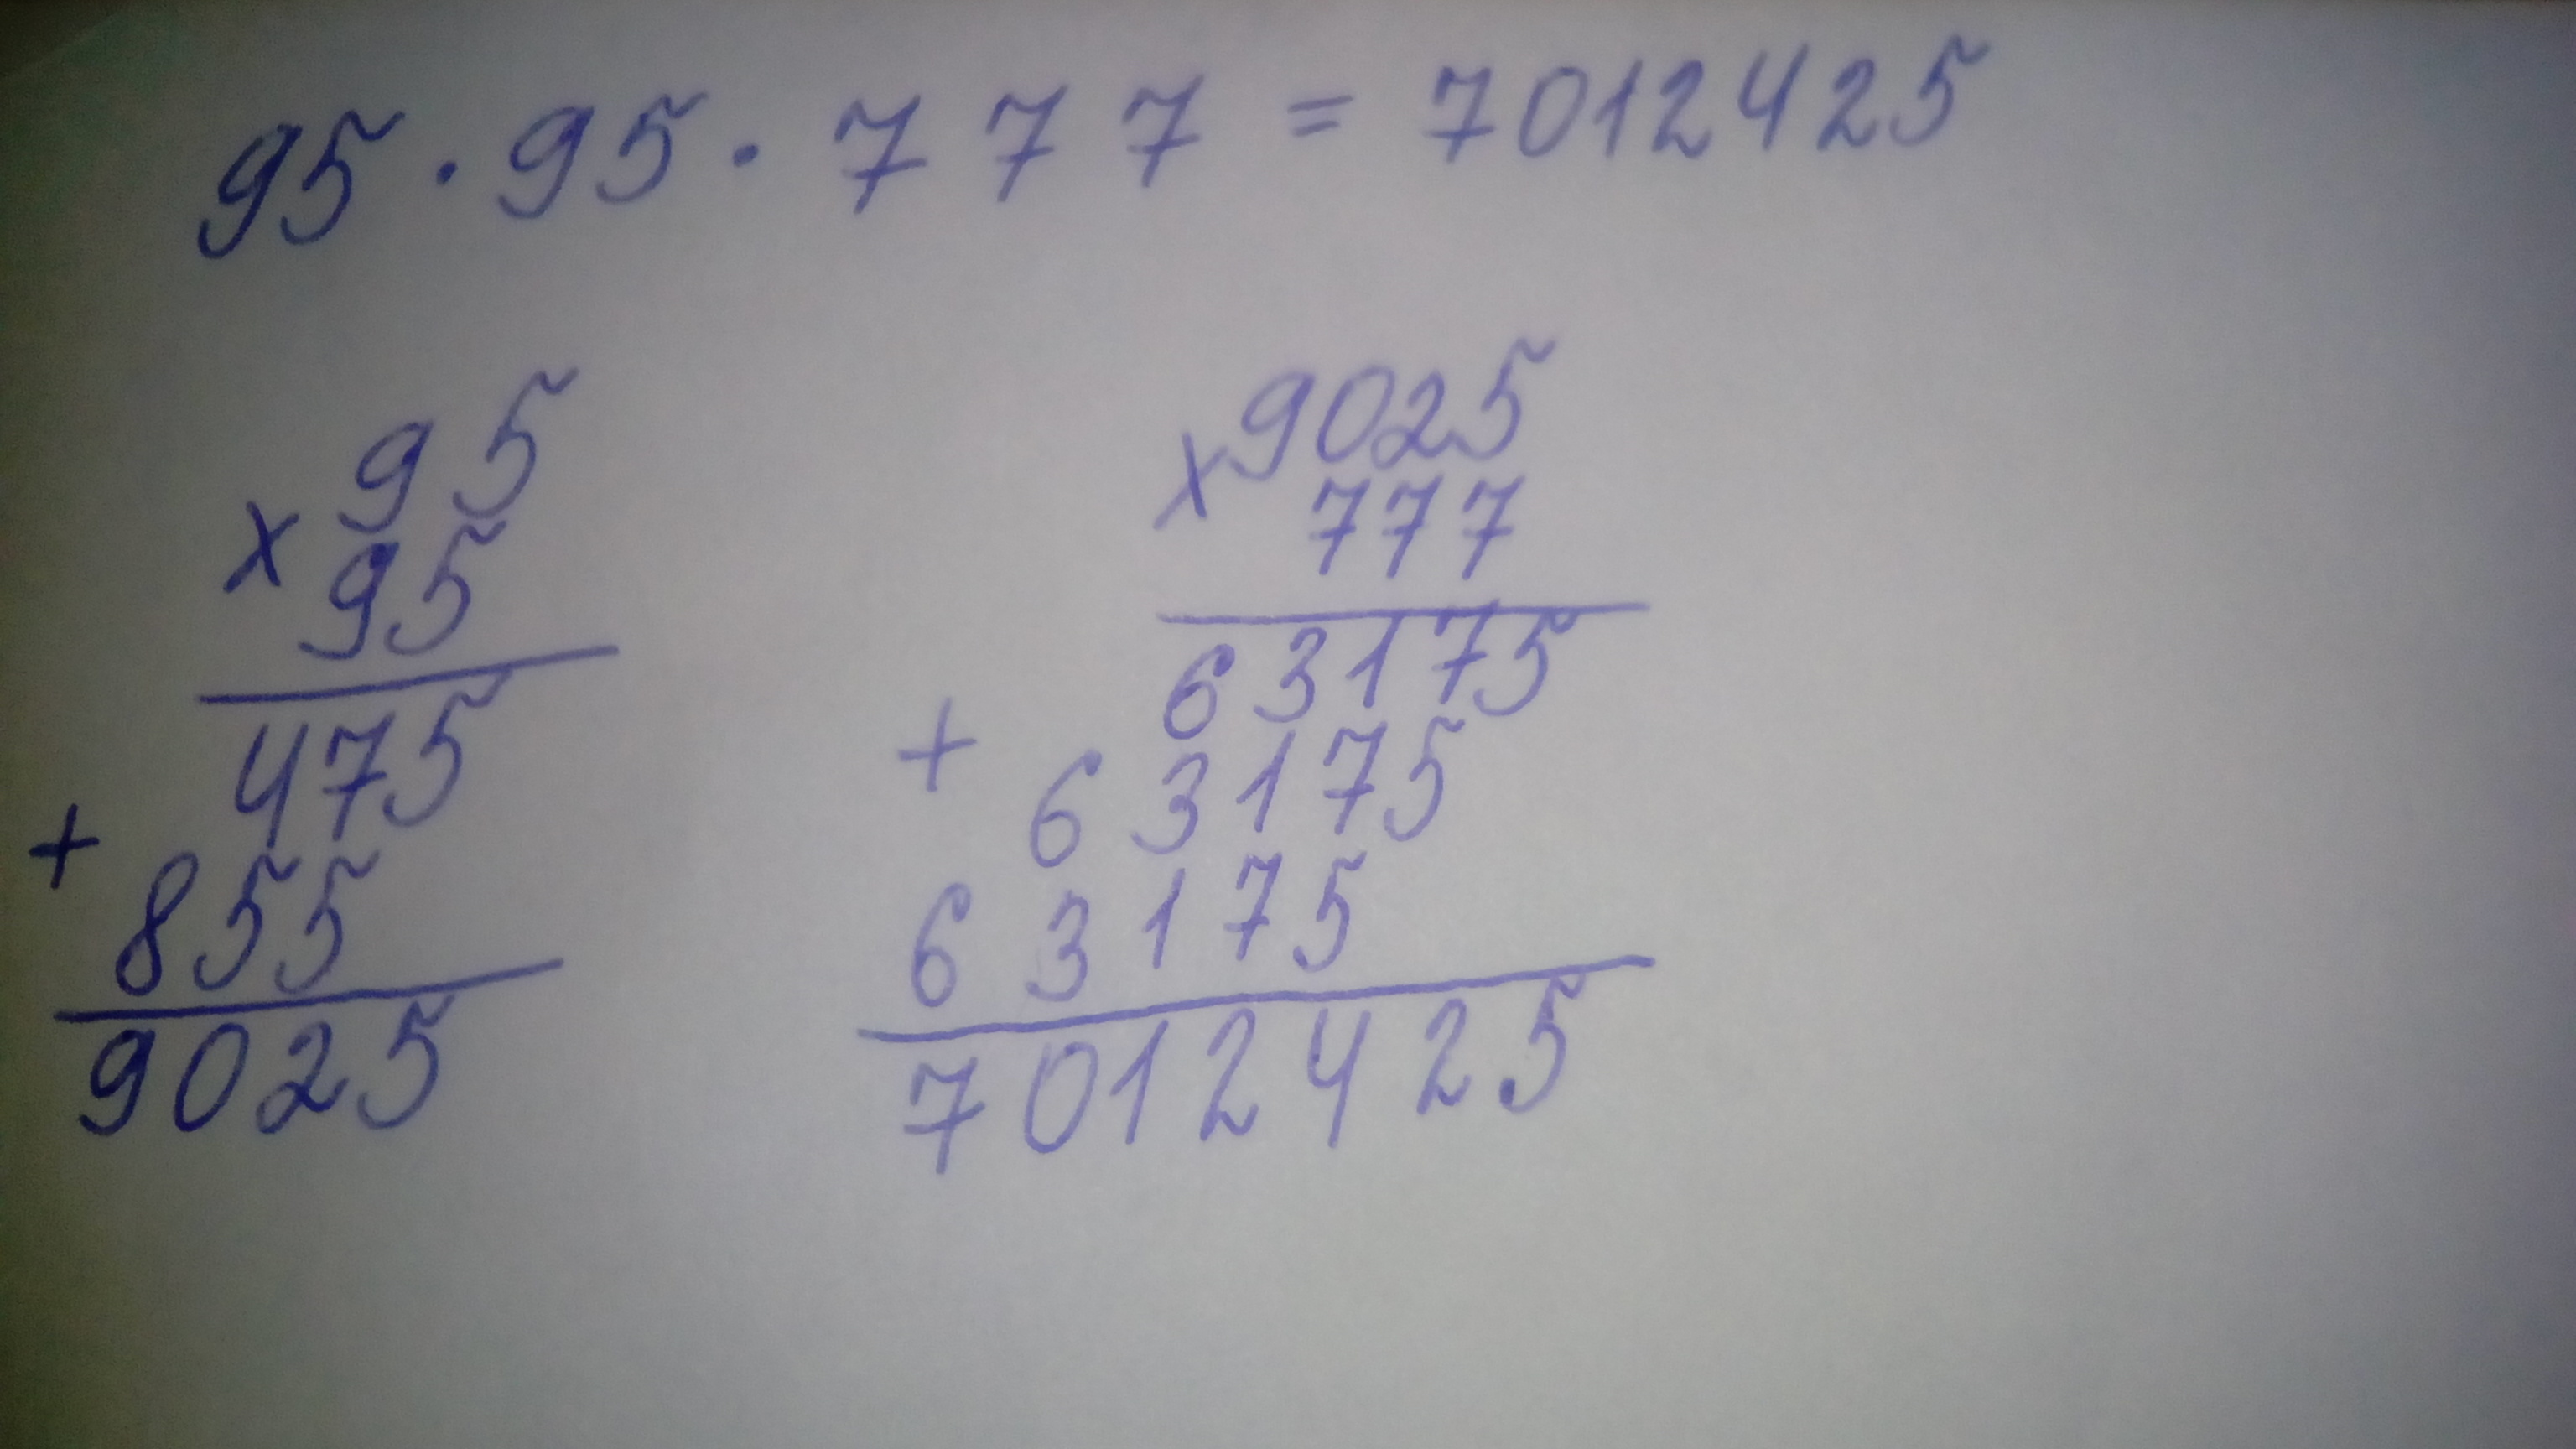 95 · 95 · 777 = 7012425
95
x
95
475
+
855
9025
9025
x
777
63175
+
63175
63175
7012425